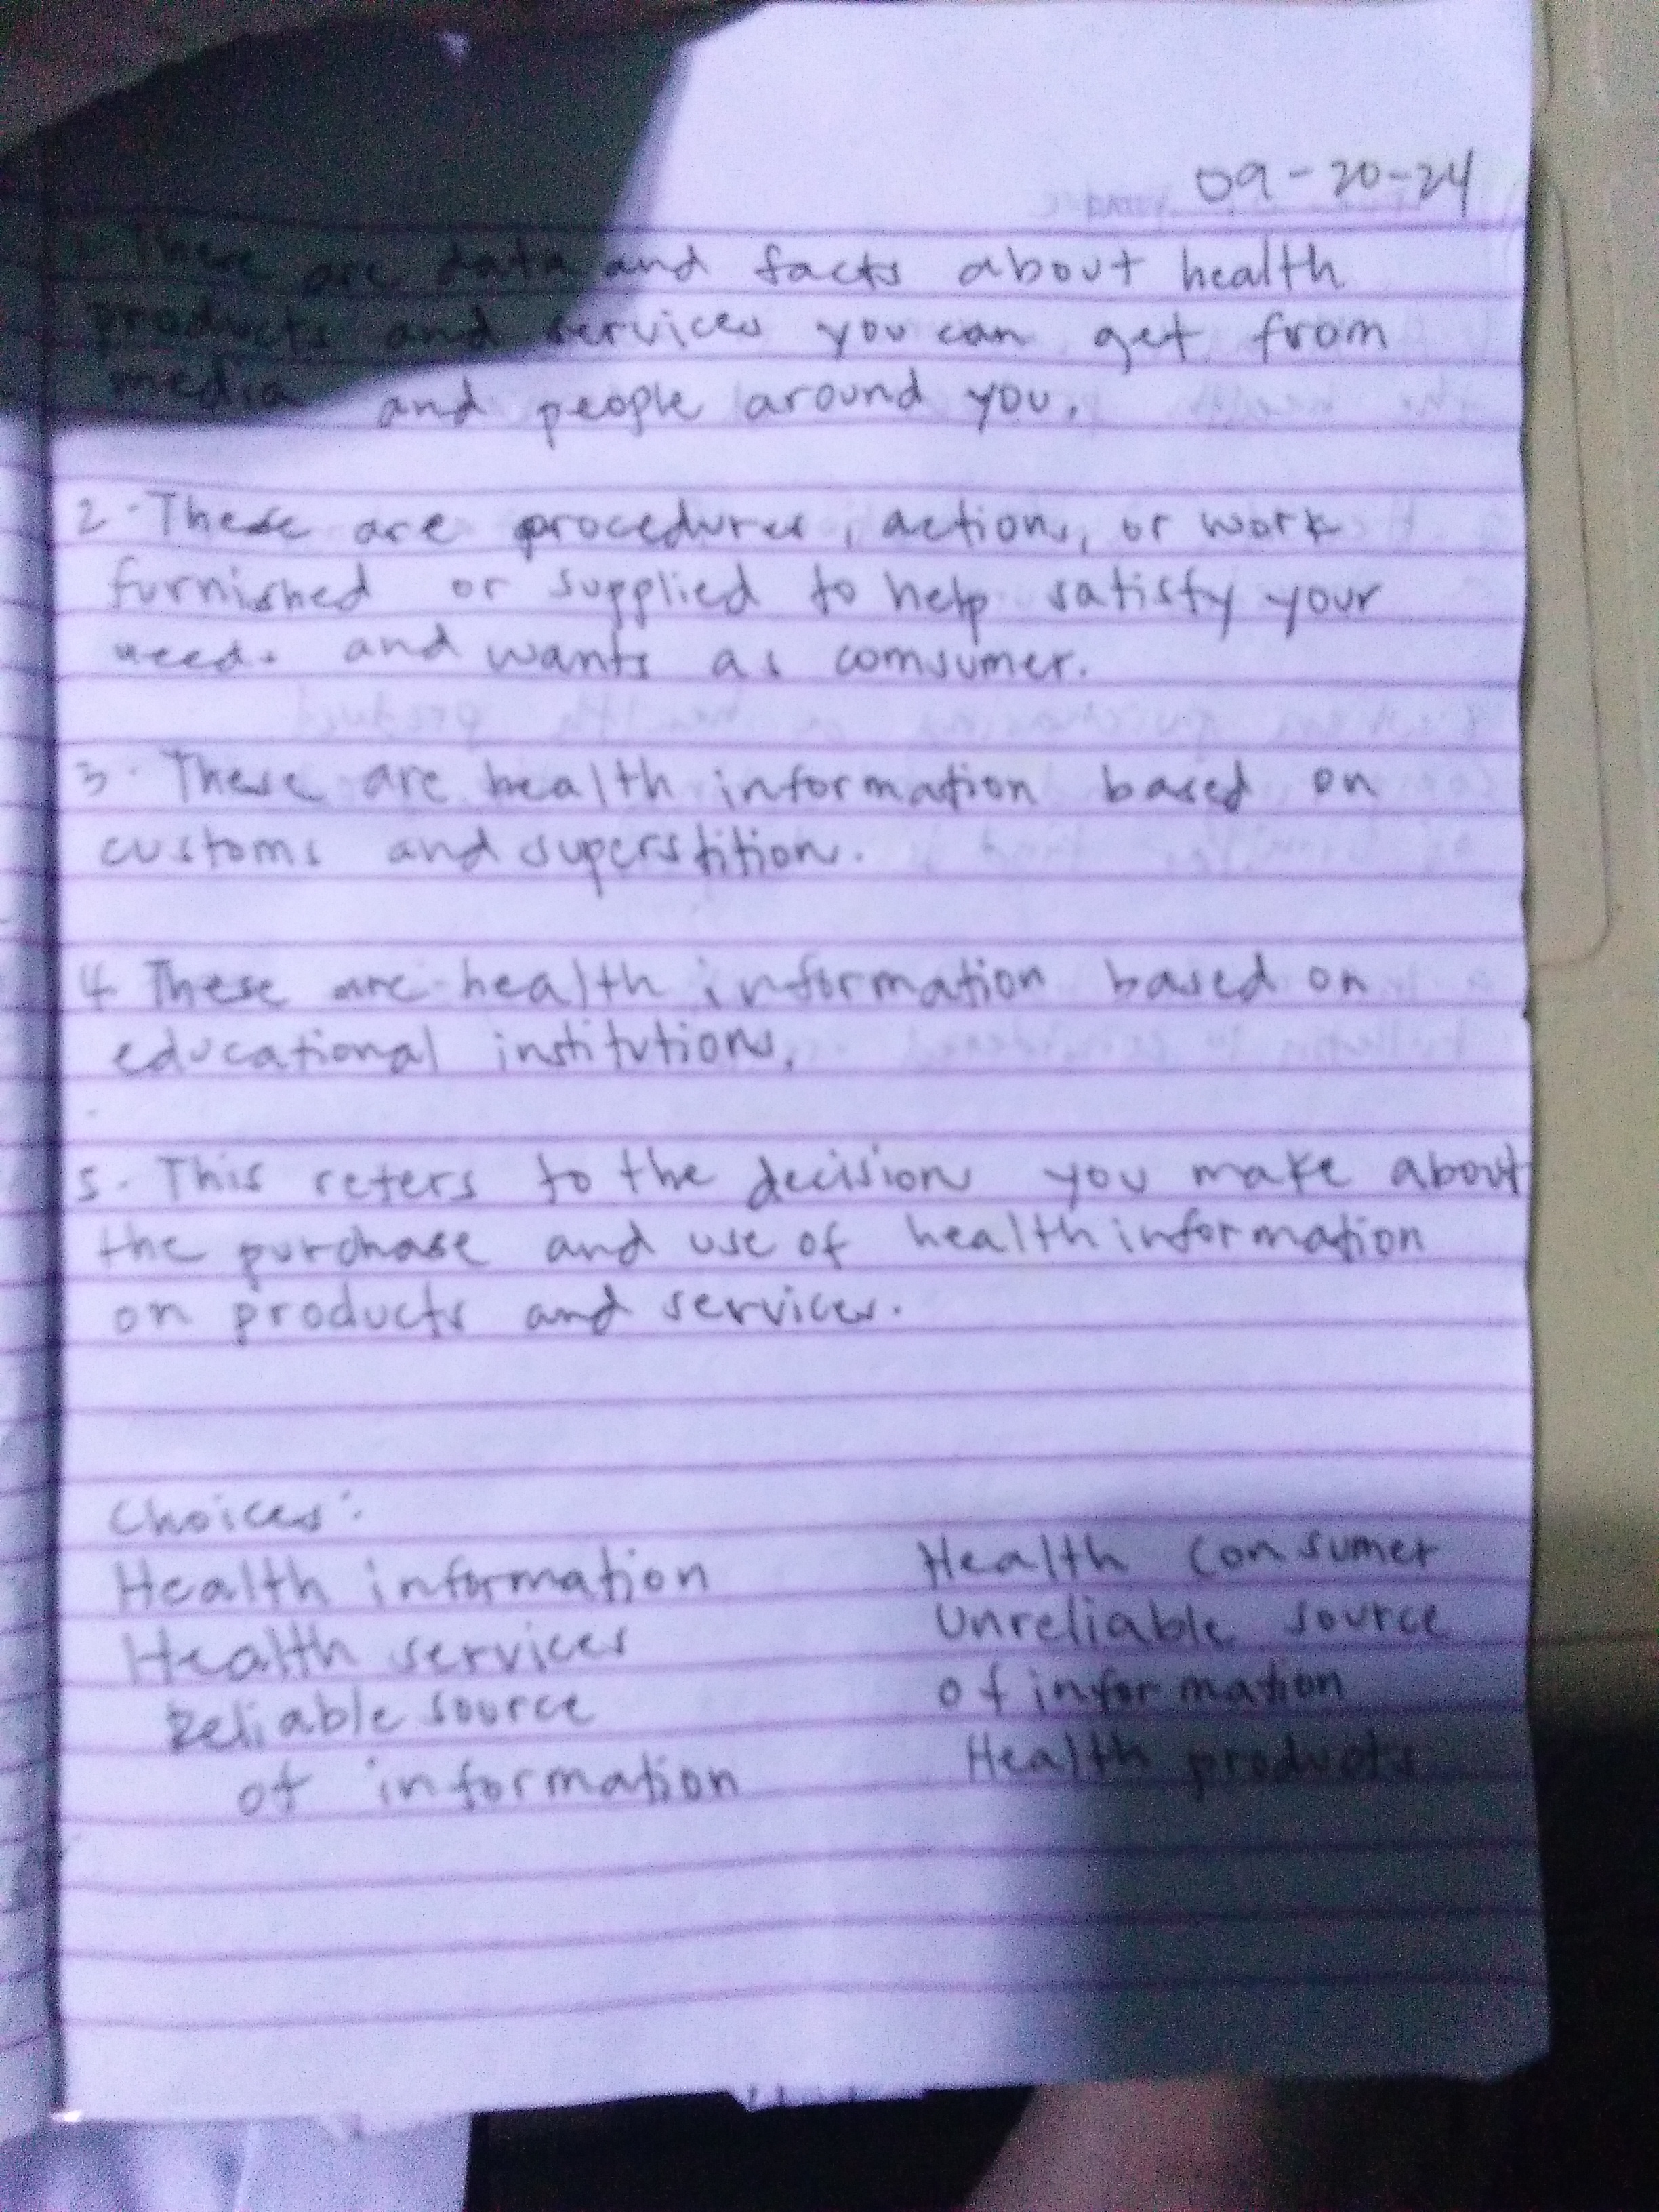 09-20-24
1. These are data and facts about health
products and services you can get from
media and people around you.
2. These are procedures, actions, or work
furnished or supplied to help satisfy your
needs and wants as comsumer.
3. These are health information based on
customs and superstition.
4 These are health information based on
educational institutions.
5. This refers to the decision you make about
the purchase and use of health information
on products and services.
Choices:
Health information
Health services
Reliable source
of information
Health consumer
Unreliable source
of information
Health products